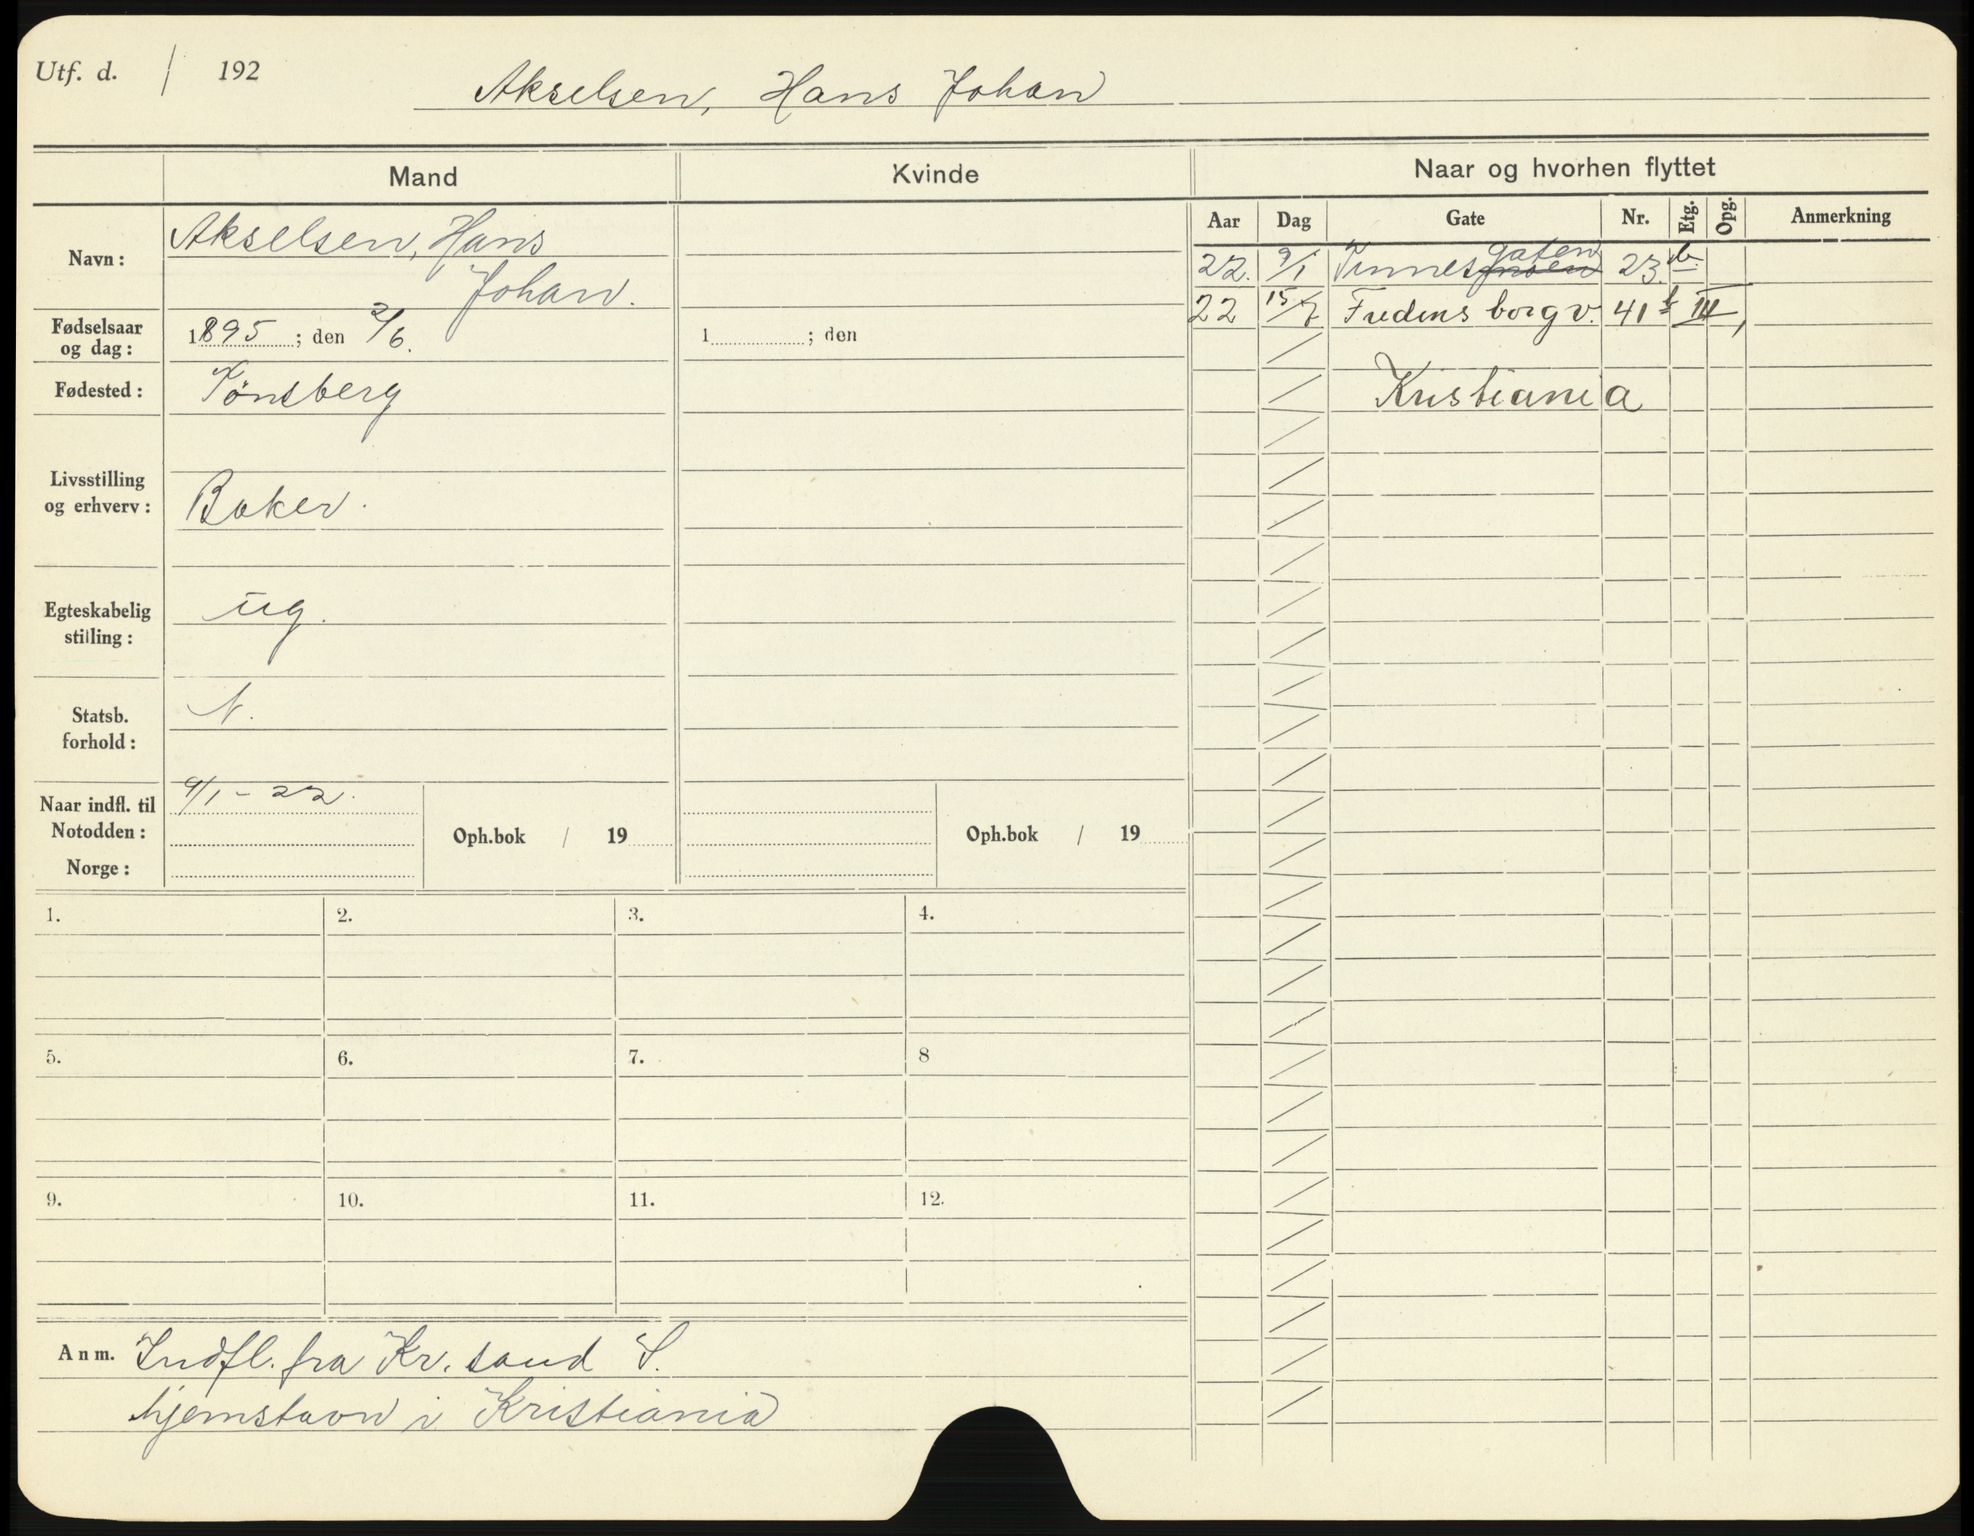 Utf. d. / 192
Akselsen, Hans Johan
Mand
Kvinde
Naar og hvorhen flyttet
Aar Dag Gate Nr. Etg. Opg. Anmerkning
Navn: Akselsen, Hans
Johan.
Fødselsaar
og dag: 1895 ; den 2/6.
1 ; den
Fødested: Tønsberg
Livsstilling
og erhverv: Baker.
Egteskabelig
stilling: ug.
Statsb.
forhold: N.
Naar indfl. til
Notodden: 9/1 - 22.
Norge:
Oph.bok / 19
Oph.bok / 19
gaten
22. 9/1 Tinnes 23. b.
22 15/7 Fredensborgv. 41 III
Kristiania
1. 2. 3. 4.
5. 6. 7. 8
9. 10. 11. 12.
Anm. Indfl. fra Kr.sand S.
hjemstavn i Kristiania